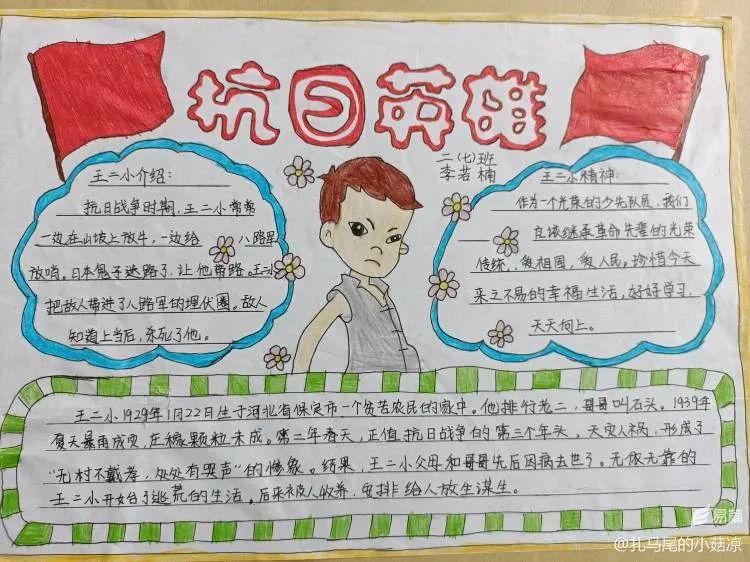 抗日英雄
二(七)班
李若楠
王二小介绍:
抗日战争时期,王二小常常
一边在山坡上放牛,一边给八路军
放哨。日本鬼子迷路了,让他带路。王二小
把敌人带进了八路军的埋伏圈。敌人
知道上当后,杀死了他。
王二小精神:
作为一个光荣的少先队员,我们
应该继承革命先辈的光荣
传统,爱祖国,爱人民。珍惜今天
来之不易的幸福生活,好好学习,
天天向上。
王二小1929年1月22日生于河北省保定市一个贫苦农民的家中。他排行老二,哥哥叫石头。1939年
夏天暴雨成灾,庄稼颗粒未成。第二年春天,正值抗日战争的第三个年头,天灾人祸,形成了
“无村不戴孝,处处有哭声”的惨象。结果,王二小父母和哥哥先后因病去世了。无依无靠的
王二小开始了逃荒的生活。后来被人收养,安排给人放牛谋生。
易撰
@扎马尾的小菇凉